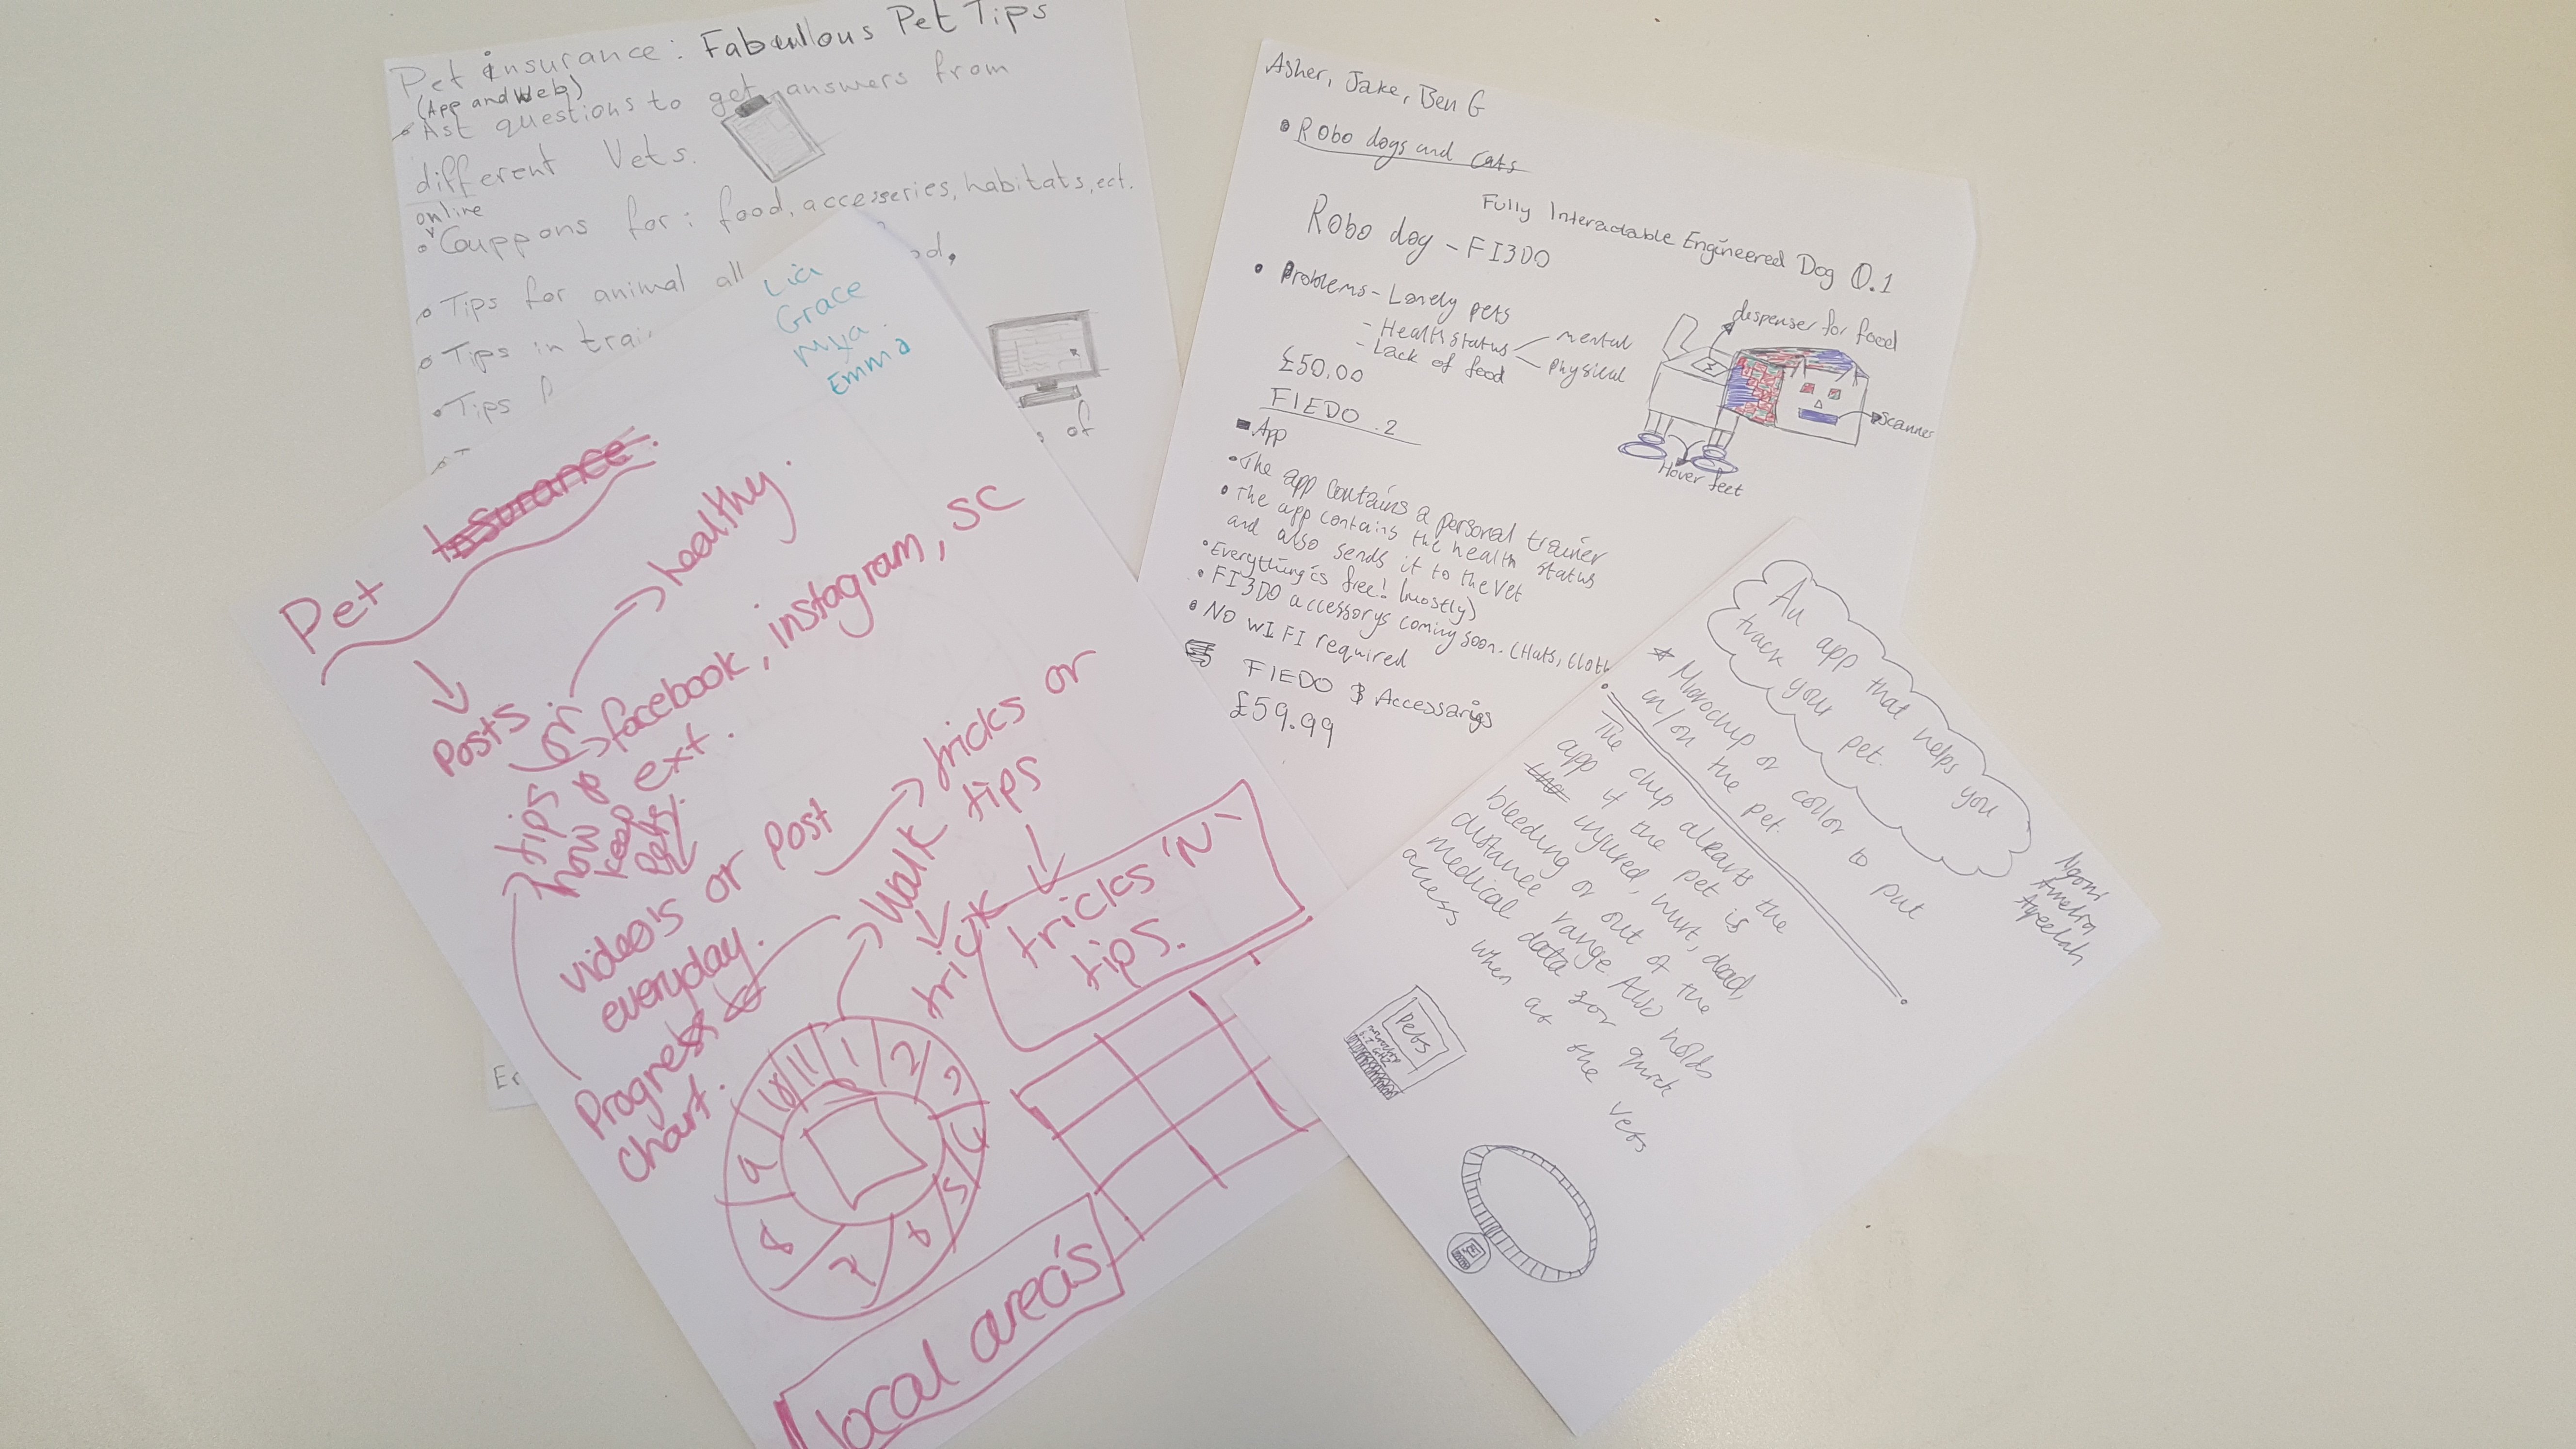 Pet insurance: Fabullous Pet Tips
(App and Web)
Ast questions to get answers from
different Vets.
online
Couppons for: food, accesseries, habitats, ect.
Tips for animal all
od.
Tips in trai
Tips f
s of
Asher, Jake, Ben G
Robo dogs and cats
Fully Interactable Engineered Dog 0.1
Robo dog - FI3DO
Problems - Lonely pets
- Health status
mental
physical
- Lack of food
£50.00
dispenser for food
scanner
Hover feet
FIEDO .2
App
The app contains a personal trainer
The app contains the health status
and also sends it to the Vet
Everything is free! (mostly)
FI3DO accessorys coming soon. (Hats, cloth
No WIFI required
FIEDO & Accessarigs
£59.99
Lia
Grace
Mya.
Emma
Pet Insurance.
healthy.
Posts or facebook, instagram, SC
ext.
tips
how
keep
video's or Post
everyday.
tricks or
tips
Walk
trick
tricks 'N'
tips.
Progress
chart.
10 11 1 2 3 4 5 6 7 8 9
local area's
An app that helps you
track your pet.
* Microchip or collor to put
in/on the pet.
The chip alearts the
app if the pet is
injured, hurt, dead,
bleeding or out of the
distance range. Also holds
medical data for quick
access when at the vets
Pets
Ayeelah